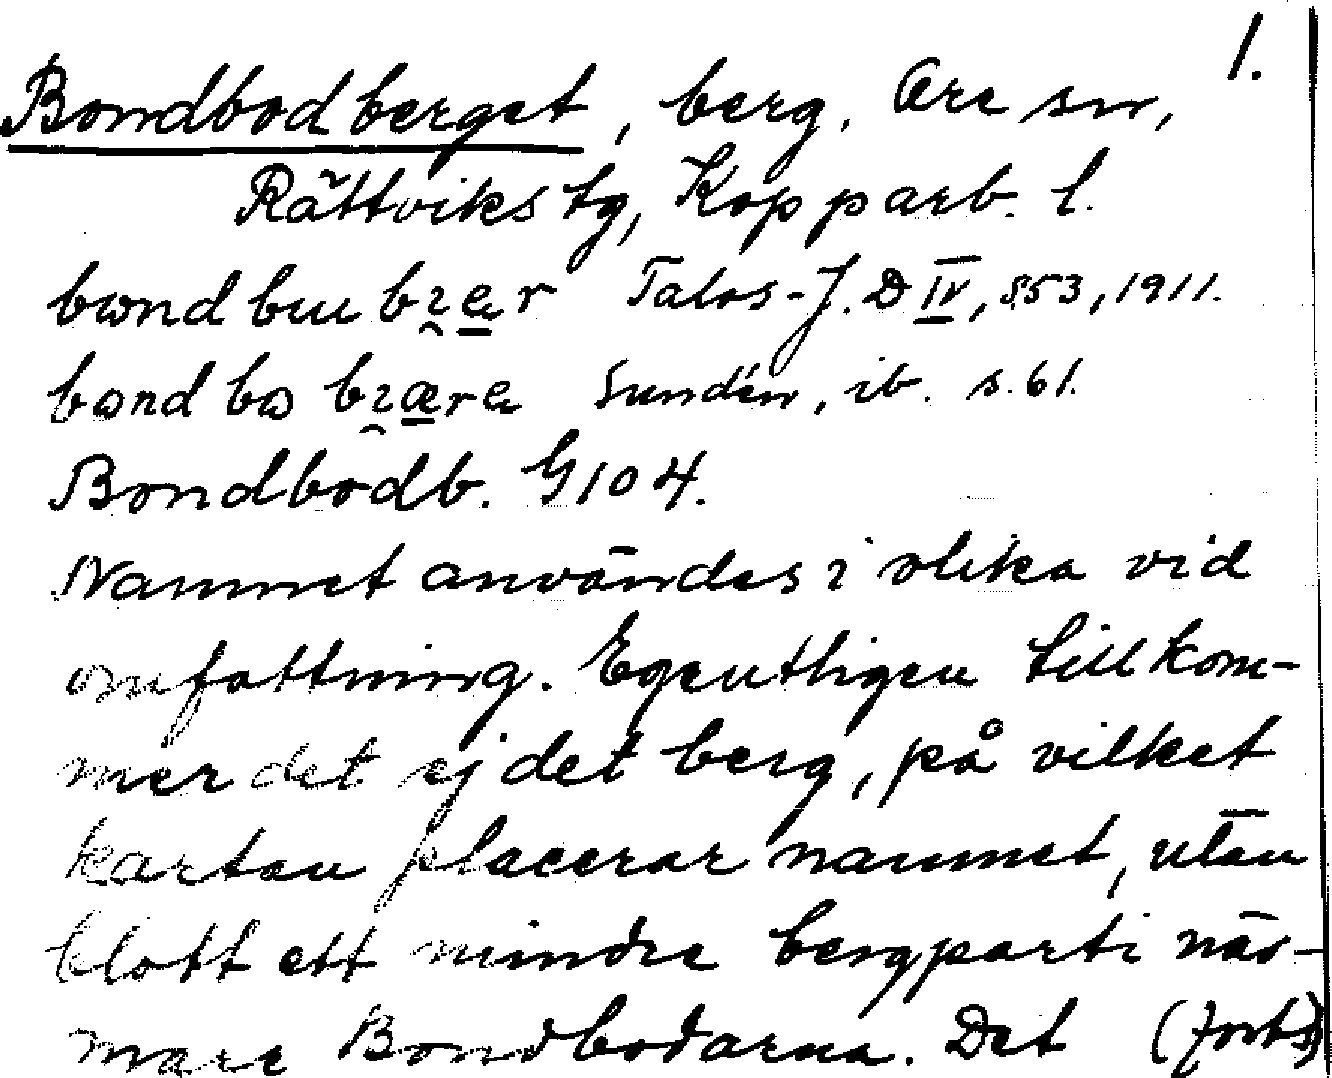 1.
Bondbodberget, berg, Ore sn,
Rättviks tg, Kopparb. l.
Talos-J. D IV, s53, 1911.
Sundén, ib. s. 61.
Bondbodb. G104.
Namnet användes i olika vid
omfattning. Egentligen tillkom-
mer det ej det berg, på vilket
kartan placerar namnet, utan
blott ett mindre bergparti när-
mare Bondbodarna. Det (forts)